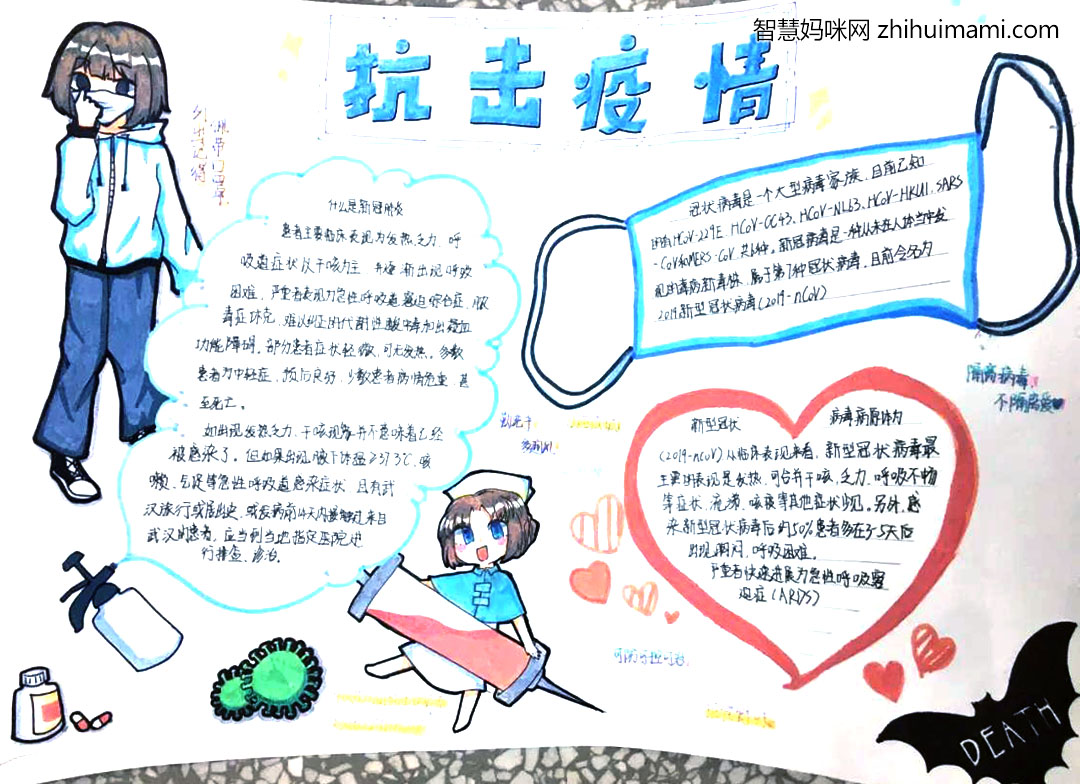 智慧妈咪网 zhihuimami.com
抗击疫情
外出记得
佩带口罩
什么是新冠肺炎
患者主要临床表现为发热、乏力,呼
吸道症状以干咳为主,并逐渐出现呼吸
困难,严重者表现为急性呼吸道窘迫综合症、脓
毒症休克、难以纠正的代谢性酸中毒和出凝血
功能障碍。部分患者症状轻微,可无发热。多数
患者为中轻症,预后良好,少数患者病情危重,甚
至死亡。
如出现发热、乏力、干咳现象,并不意味着已经
被感染了。但如果出现 体温≥37.3℃、咳
嗽、气促等急性呼吸道感染症状,且有武
汉旅行或居住史,或发病前14天内接触过来自
武汉的患者,应当到当地指定医院进
行排查、诊治。
冠状病毒是一个大型病毒家族,目前已知
HCoV-229E HCoV-OC43、HCoV-NL63、HCoV-HKU1、SARS
-CoV和MERS-CoV 共6种。新冠病毒是一种从未在人体当中发
现的毒病新毒株,属于第7种冠状病毒,目前命名为
2019新型冠状病毒(2019-nCoV)
隔离病毒
不隔离爱
勤洗手
新型冠状 病毒病原体为
(2019-nCoV)从临床表现来看,新型冠状病毒最
主要的表现是发热,可合并干咳、乏力、呼吸不畅
等症状,流涕、咳痰等其他症状少见。另外,感
染新型冠状病毒后约50%患者多在3-5天后
出现胸闷、呼吸困难。
严重者快速进展为急性呼吸窘
迫症(ARDS)
可防可控可治
DEATH